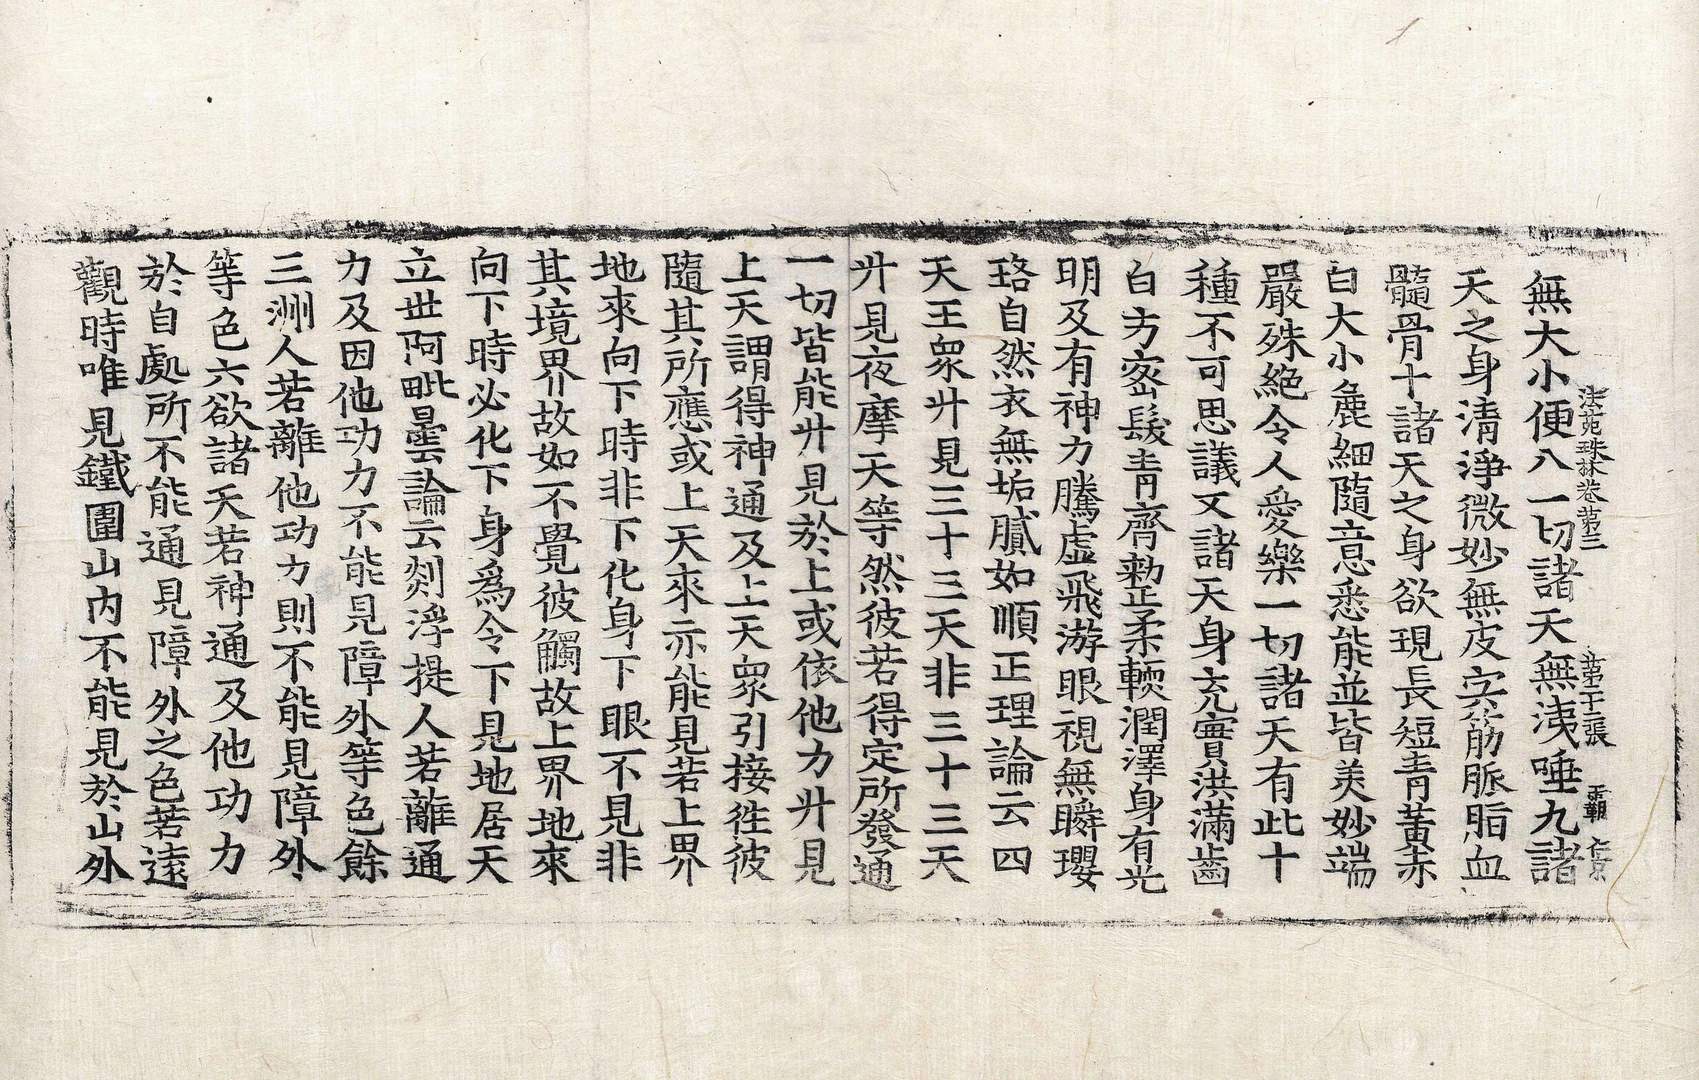 無大小便八一切諸天無洟唾九諸
法苑珠林卷第三 第二十二張
天之身清淨微妙無皮肉筋脈脂血
髓骨十諸天之身欲現長短青黃赤
白大小麁細隨意悉能並皆美妙端
嚴殊絕令人愛樂一切諸天有此十
種不可思議又諸天身充實洪滿齒
白方密髮青齊整柔軟潤澤身有光
明及有神力騰虛飛游眼視無瞬瓔
珞自然衣無垢膩如順正理論云四
天王衆升見三十三天非三十三天
升見夜摩天等然彼若得定所發通
一切皆能升見於上或依他力升見
上天謂得神通及上天衆引接徃彼
隨其所應或上天來亦能見若上界
地來向下時非下化身下眼不見非
其境界故如不覺彼觸故上界地來
向下時必化下身爲令下見地居天
立世阿毗曇論云剡浮提人若離通
力及因他功力不能見障外等色餘
三洲人若離他功力則不能見障外
等色六欲諸天若神通及他功力
於自處所不能通見障外之色若遠
觀時唯見鐵圍山内不能見於山外